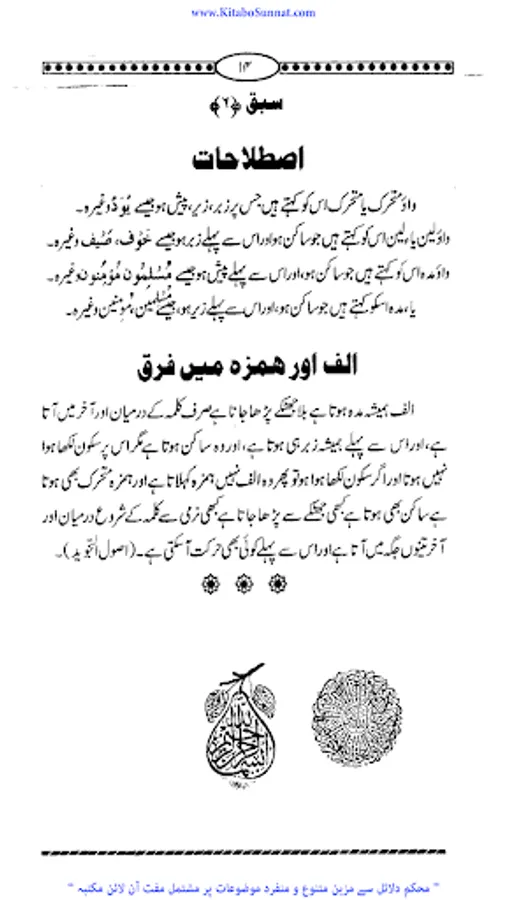 www.KitaboSunnat.com
۱۴
سبق ﴿۲﴾
اصطلاحات
واؤ متحرک یا متحرک اس کو کہتے ہیں جس پر زبر، زیر، پیش ہو جیسے یُوَدُّ وغیرہ۔
واؤ لین یاء لین اس کو کہتے ہیں جو ساکن ہو اور اس سے پہلے زبر ہو جیسے خَوْف، صَیْف وغیرہ۔
واؤ مدہ اس کو کہتے ہیں جو ساکن ہو، اور اس سے پہلے پیش ہو جیسے مُسْلِمُونَ مُؤْمِنُونَ وغیرہ۔
یاء مدہ اسکو کہتے ہیں جو ساکن ہو، اور اس سے پہلے زیر ہو، جیسے مُسْلِمِین، مُؤمِنِین وغیرہ۔
الف اور همزہ میں فرق
الف ہمیشہ مدہ ہوتا ہے بلا جھٹکے پڑھا جاتا ہے صرف کلمہ کے درمیان اور آخر میں آتا
ہے، اور اس سے پہلے ہمیشہ زبر ہی ہوتا ہے، اور وہ ساکن ہوتا ہے مگر اس پر سکون لکھا ہوا
نہیں ہوتا اور اگر سکون لکھا ہوا ہو تو پھر وہ الف نہیں ہمزہ کہلاتا ہے اور ہمزہ متحرک بھی ہوتا
ہے ساکن بھی ہوتا ہے کبھی جھٹکے سے پڑھا جاتا ہے کبھی نرمی سے کلمہ کے شروع درمیان اور
آخر تینوں جگہ میں آتا ہے اور اس سے پہلے کوئی بھی حرکت آسکتی ہے۔ (اصول التجوید)۔
" محکم دلائل سے مزین متنوع و منفرد موضوعات پر مشتمل مفت آن لائن مکتبہ "